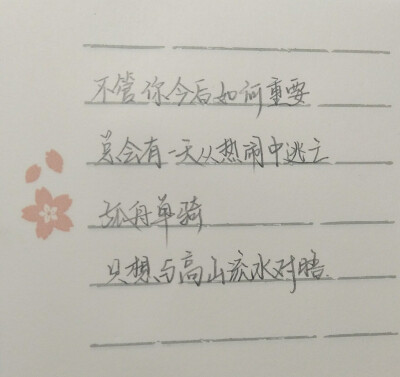 不管你今后如何重要
总会有一天从热闹中逃亡
孤舟单骑
只想与高山流水对晤.